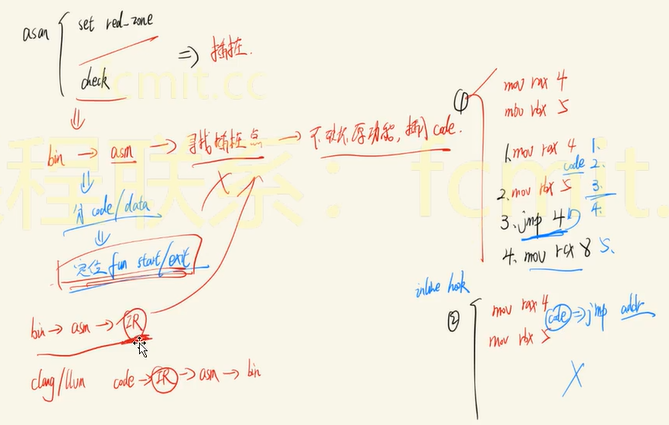 asan
set red_zone
check
⇒ 插桩.
bin → asm → 寻找插桩点 → 不破坏原功能, 插入 code.
分 code/data
定位 fun start/exit
bin → asm → IR
clang/llvm code → IR → asm → bin
①
mov rax 4
mov rbx 5
1. mov rax 4 1.
code 2.
2. mov rbx 5 3.
3. jmp 4 4.
4. mov rcx 8 5.
inline hook
②
mov rax 4
code ⇒ jmp addr
mov rbx 5
X
X
fcmit.cc
程联系
fcmit.c